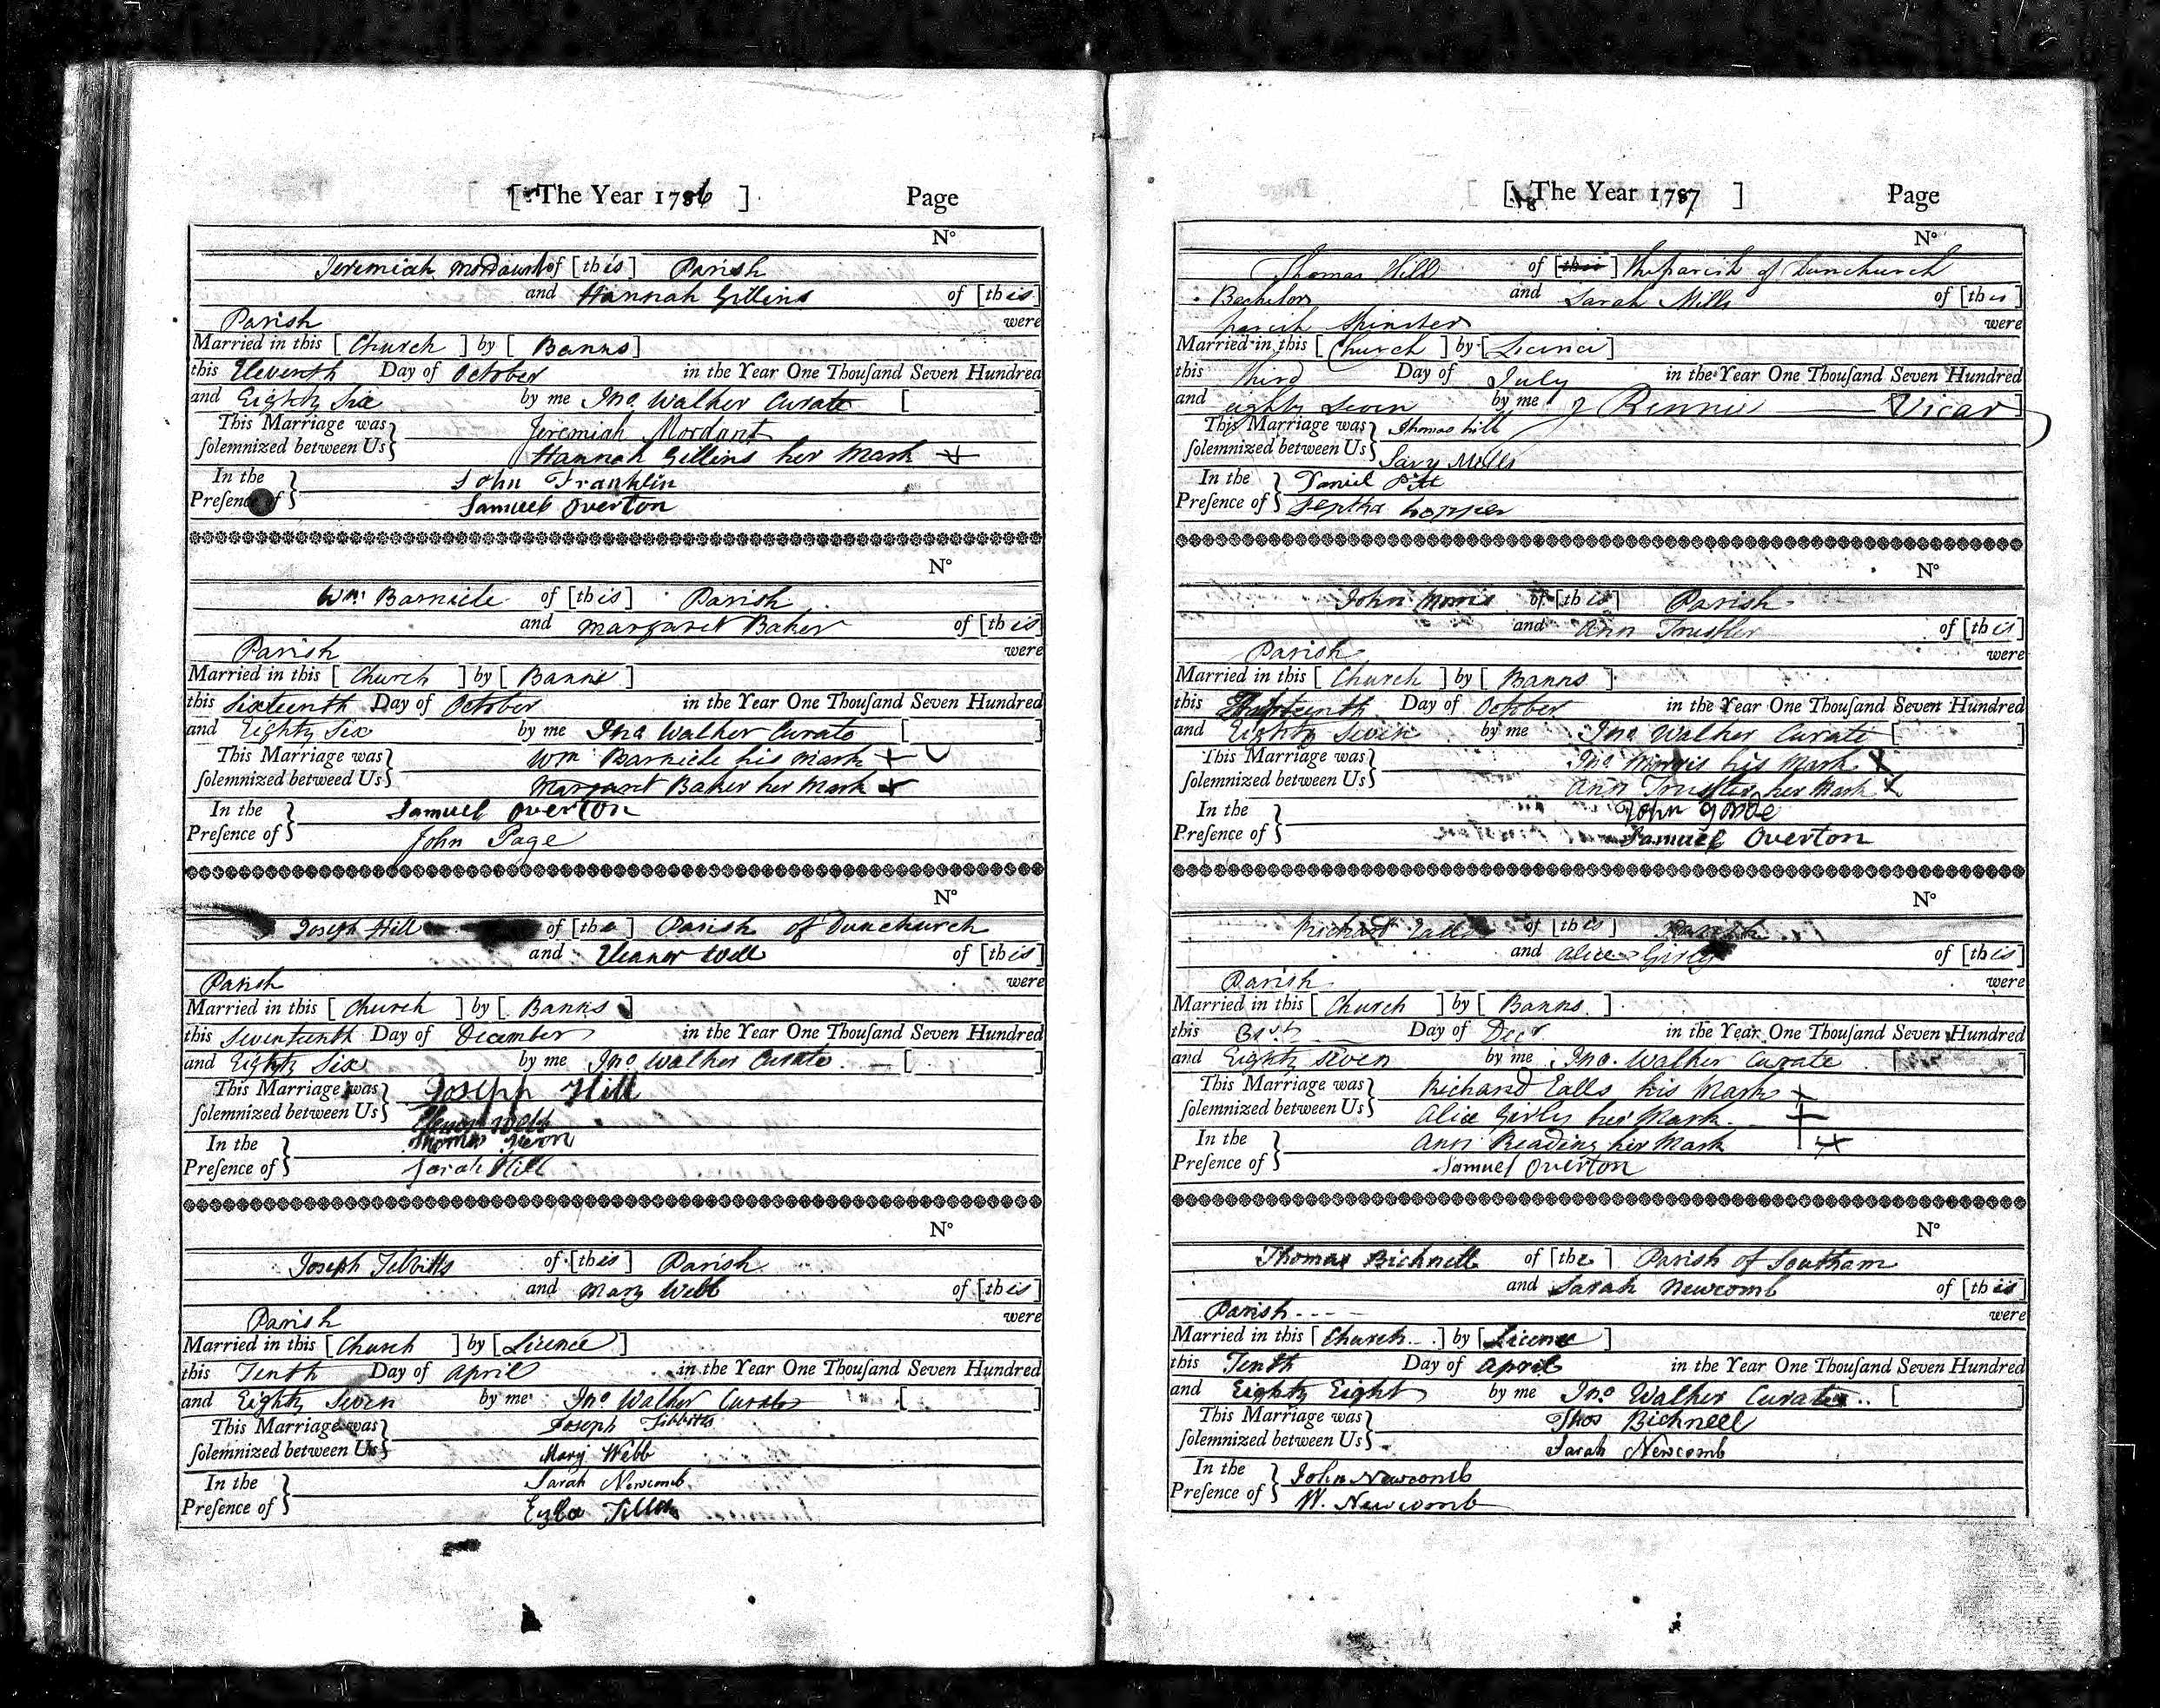 [ The Year 1786 ] Page
N°
Jeremiah Mordaunt of [this] Parish
and Hannah Gillins of [this]
Parish were
Married in this [ Church ] by [ Banns ]
this Eleventh Day of October in the Year One Thouſand Seven Hundred
and Eighty Six by me Jno. Walker Curate [ ]
This Marriage was
ſolemnized between Us
Jeremiah Mordant
Hannah Gillins her Mark +
In the
Preſence of
John Franklin
Samuel Overton
N°
Wm. Barnicle of [this] Parish
and Margaret Baker of [this]
Parish were
Married in this [ Church ] by [ Banns ]
this Sixteenth Day of October in the Year One Thouſand Seven Hundred
and Eighty Six by me Jno Walker Curate [ ]
This Marriage was
ſolemnized betweed Us
Wm Barnicle his mark +
Margaret Baker her Mark +
In the
Preſence of
Samuel Overton
John Page
N°
Joseph Hill of [the] Parish of Dunchurch
and Eleanor Well of [this]
Parish were
Married in this [ Church ] by [ Banns ]
this Seventeenth Day of December in the Year One Thouſand Seven Hundred
and Eighty Six by me Jno. Walker Curate. — [ ]
This Marriage was
ſolemnized between Us
Joseph Hill
In the
Preſence of
Thomas
Sarah Hill
N°
Joseph Tebbitts of [this] Parish
and Mary Webb of [this]
Parish were
Married in this [ Church ] by [ Licence ]
this Tenth Day of April in the Year One Thouſand Seven Hundred
and Eighty Seven by me Jno Walker Curate [ ]
This Marriage was
ſolemnized between Us
Joseph Tibbitts
Mary Webb
In the
Preſence of
Sarah Newcomb
[ The Year 1787 ] Page
N°
Thomas Hill of [this] the parish of Dunchurch
Bachelor and Sarah Mills of [this]
parish Spinster were
Married in this [ Church ] by [ Licence ]
this third Day of July in the Year One Thouſand Seven Hundred
and eighty Seven by me J Rennie — Vicar ]
This Marriage was
ſolemnized between Us
Thomas hill
Sary Mills
In the
Preſence of
Daniel Pitt
N°
John Morris of [this] Parish
and Ann Trusler of [this]
Parish were
Married in this [ Church ] by [ Banns ]
this Day of October in the Year One Thouſand Seven Hundred
and Eighty Seven by me Jno Walker Curate [ ]
This Marriage was
ſolemnized between Us
Jno Morris his Mark X
Ann Trusler her Mark X
In the
Preſence of
John
Samuel Overton
N°
Richard Ealls of [this] Parish
and Alice Girly of [this]
Parish were
Married in this [ Church ] by [ Banns ]
this Day of Decr. in the Year One Thouſand Seven Hundred
and Eighty Seven by me Jno. Walker Curate [ ]
This Marriage was
ſolemnized between Us
Richard Ealls his Mark +
Alice Girly her Mark. +
In the
Preſence of
Ann Reading her Mark +
Samuel Overton
N°
Thomas Bicknell of [the] Parish of Southam
and Sarah Newcomb of [this]
Parish were
Married in this [ Church ] by [ Licence ]
this Tenth Day of April in the Year One Thouſand Seven Hundred
and Eighty Eight by me Jno. Walker Curate.. [ ]
This Marriage was
ſolemnized between Us
Thos Bicknell
Sarah Newcomb
In the
Preſence of
John Newcomb
W. Newcomb